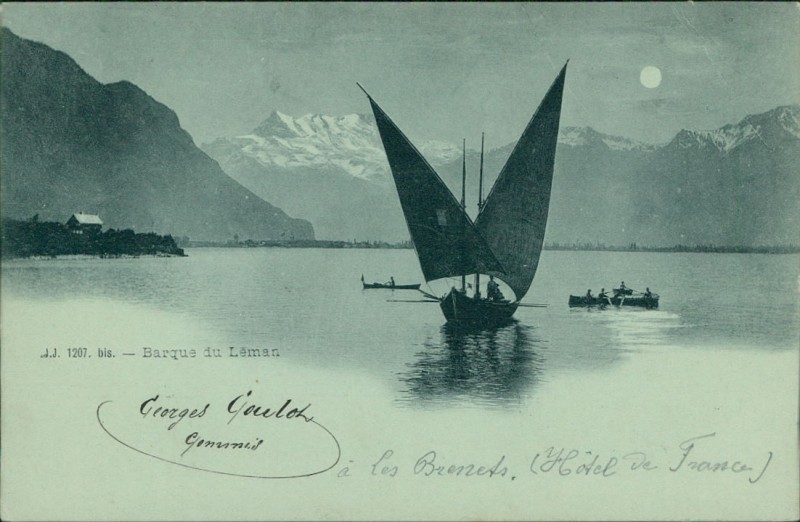 J.J. 1207. bis. — Barque du Léman
Georges Goulot
Commis
à les Brenets. (Hôtel de France)